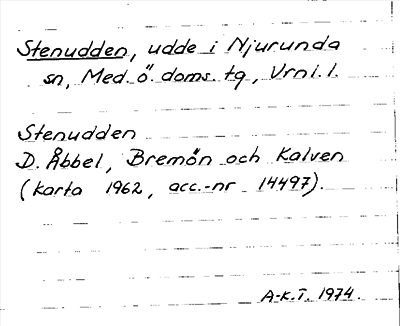 Stenudden, udde i Njurunda
sn, Med. ö. doms. tg, Vrnl. l.
Stenudden
D. Åbbel, Bremön och Kalven
(karta 1962, acc.-nr 14497).
A-K.T. 1974.